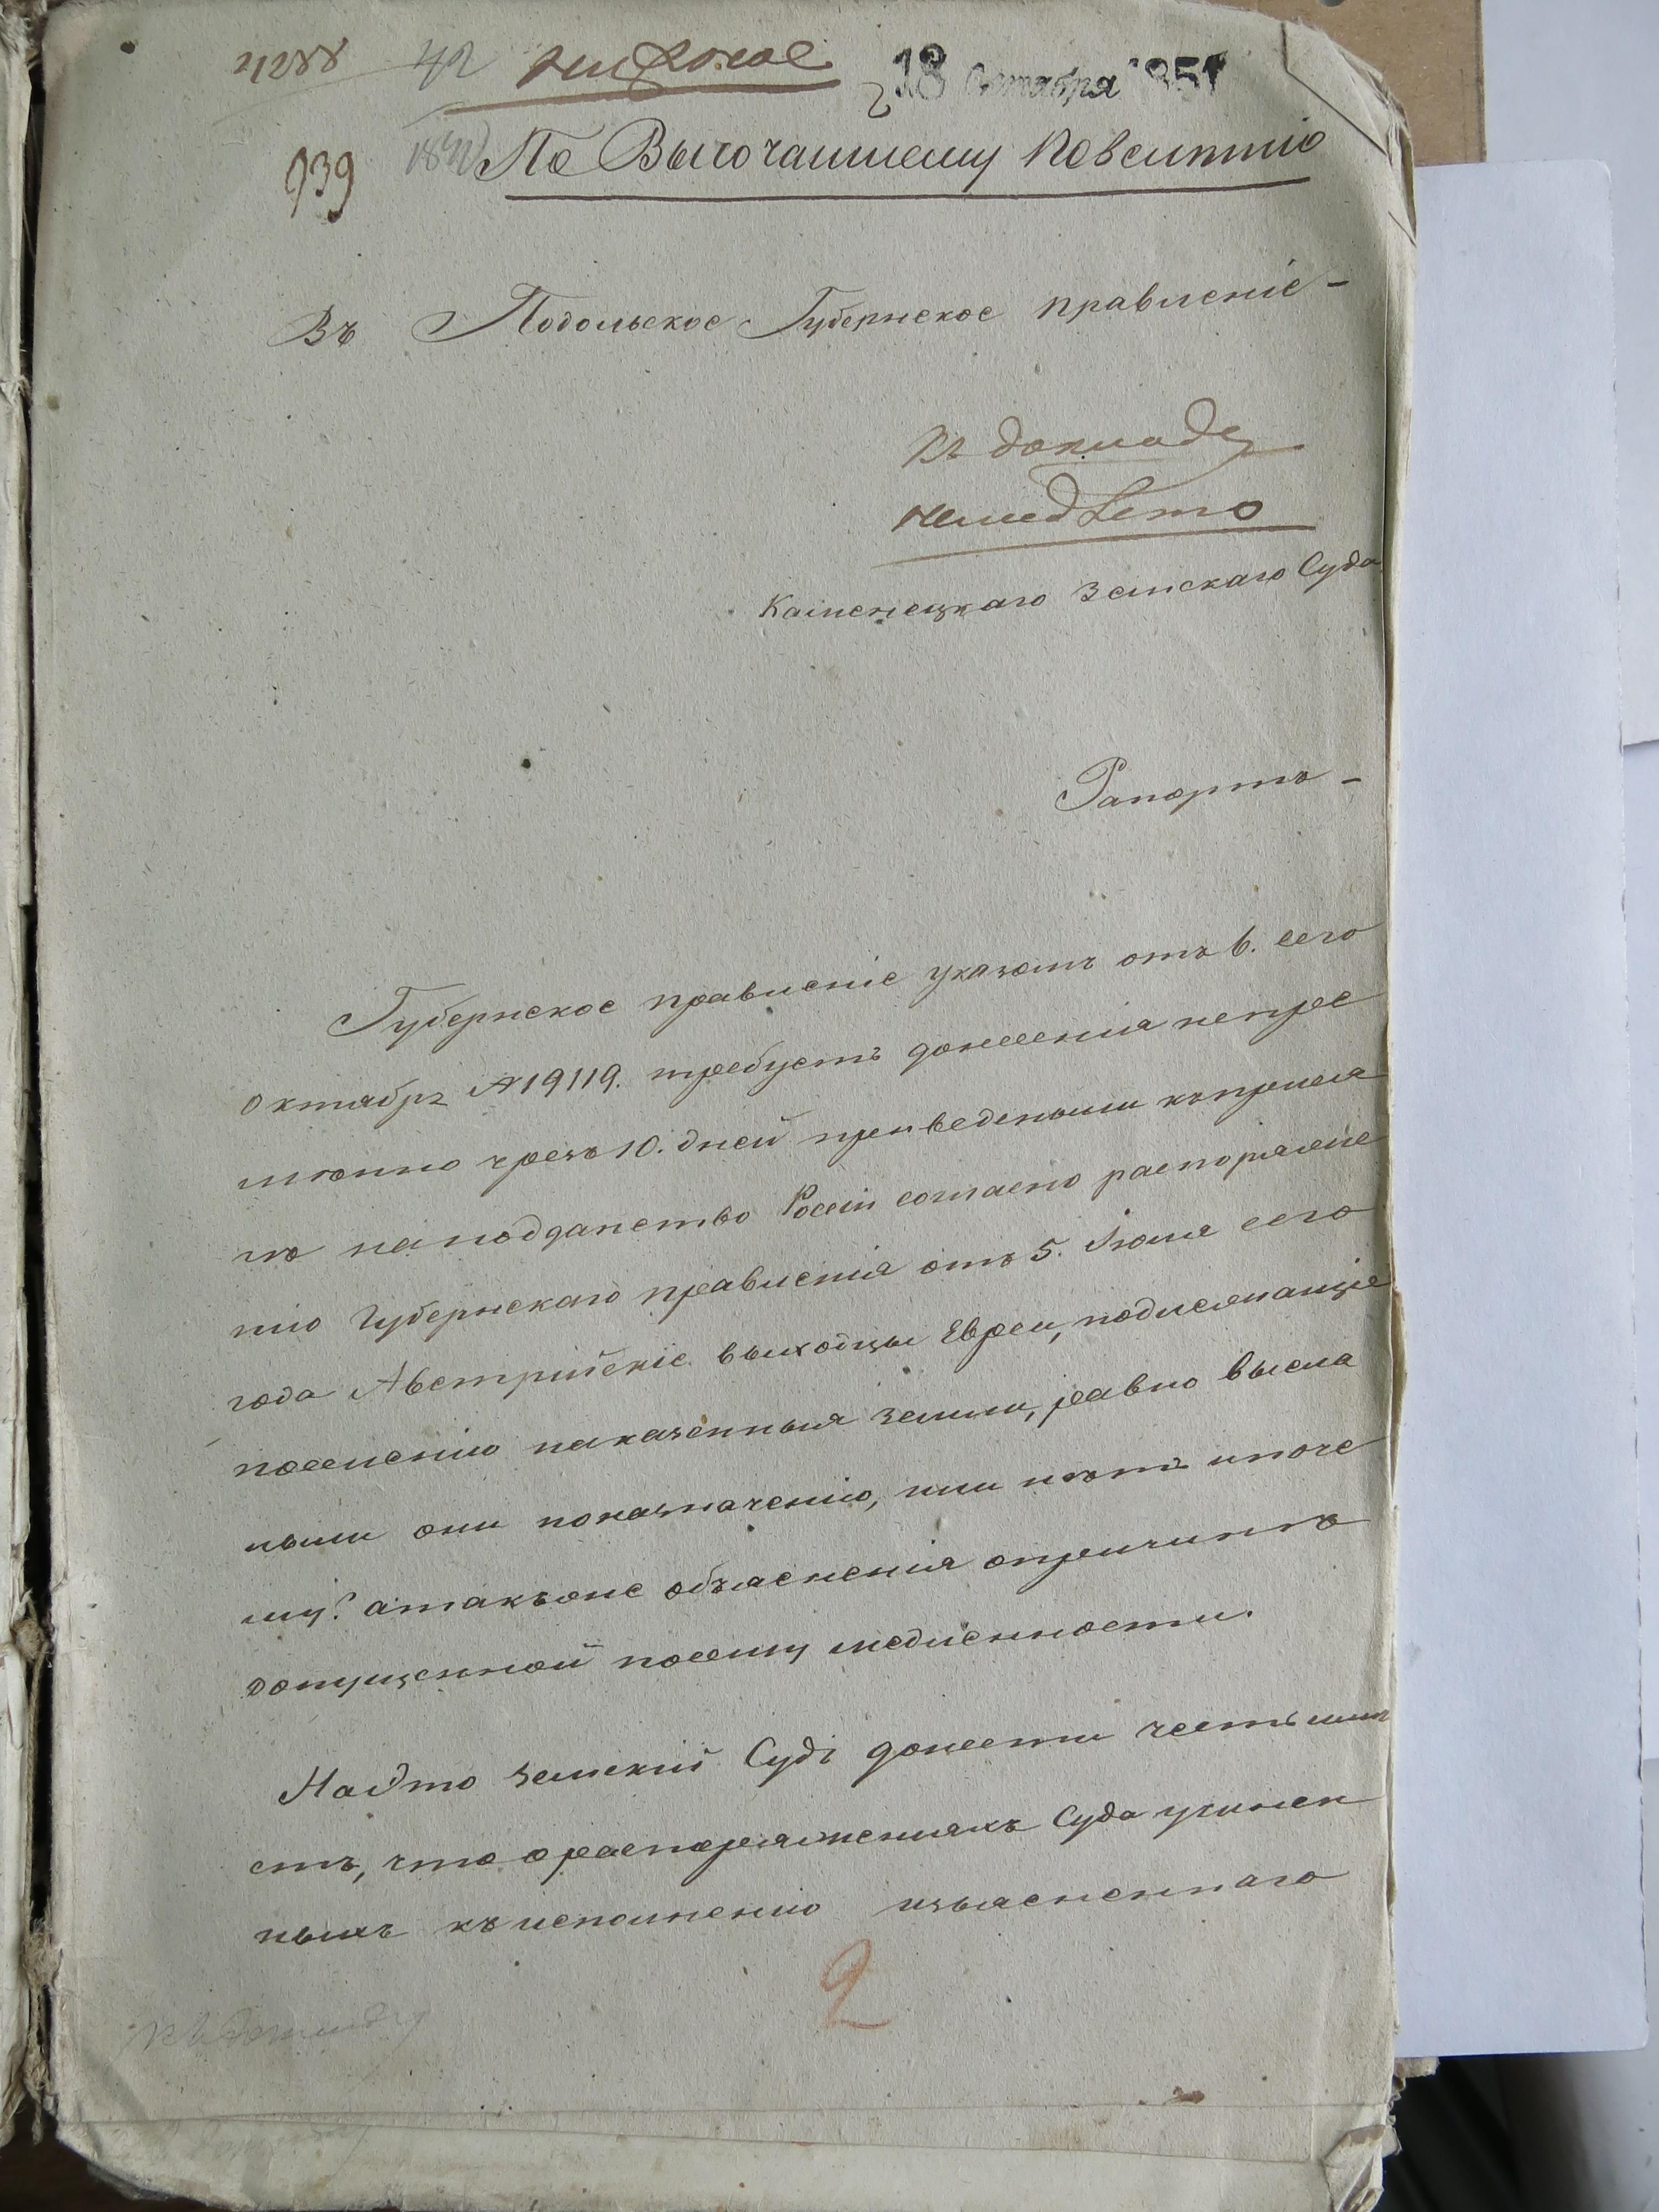 4288 42
18 Октября 1851
939 По Высочайшему Повелѣнію
Въ Подольское Губернское правленіе -
Къ докладу
немедленно
Каменецкаго Земскаго Суда
Рапортъ -
Губернское правленіе указомъ отъ 6. сего
Октября №19119. требуетъ донесенія непре
мѣнно чрезъ 10. дней приведенными къ прися
гѣ на подданство Россіи согласно распоряже
нію Губернскаго правленія отъ 5. Іюля сего
года Австрійскіе выходцы Евреи, подлежащіе
поселенію на казенныя земли, равно высла
ными они по назначенію, или нѣтъ и поче
му? а такъ же объясненія о причинѣ
допущенной по сему медленности.
На Это земскій Судъ донести честь имѣ
етъ, что о распоряженіяхъ Суда учинен
ныхъ къ исполненію изъясненнаго
2